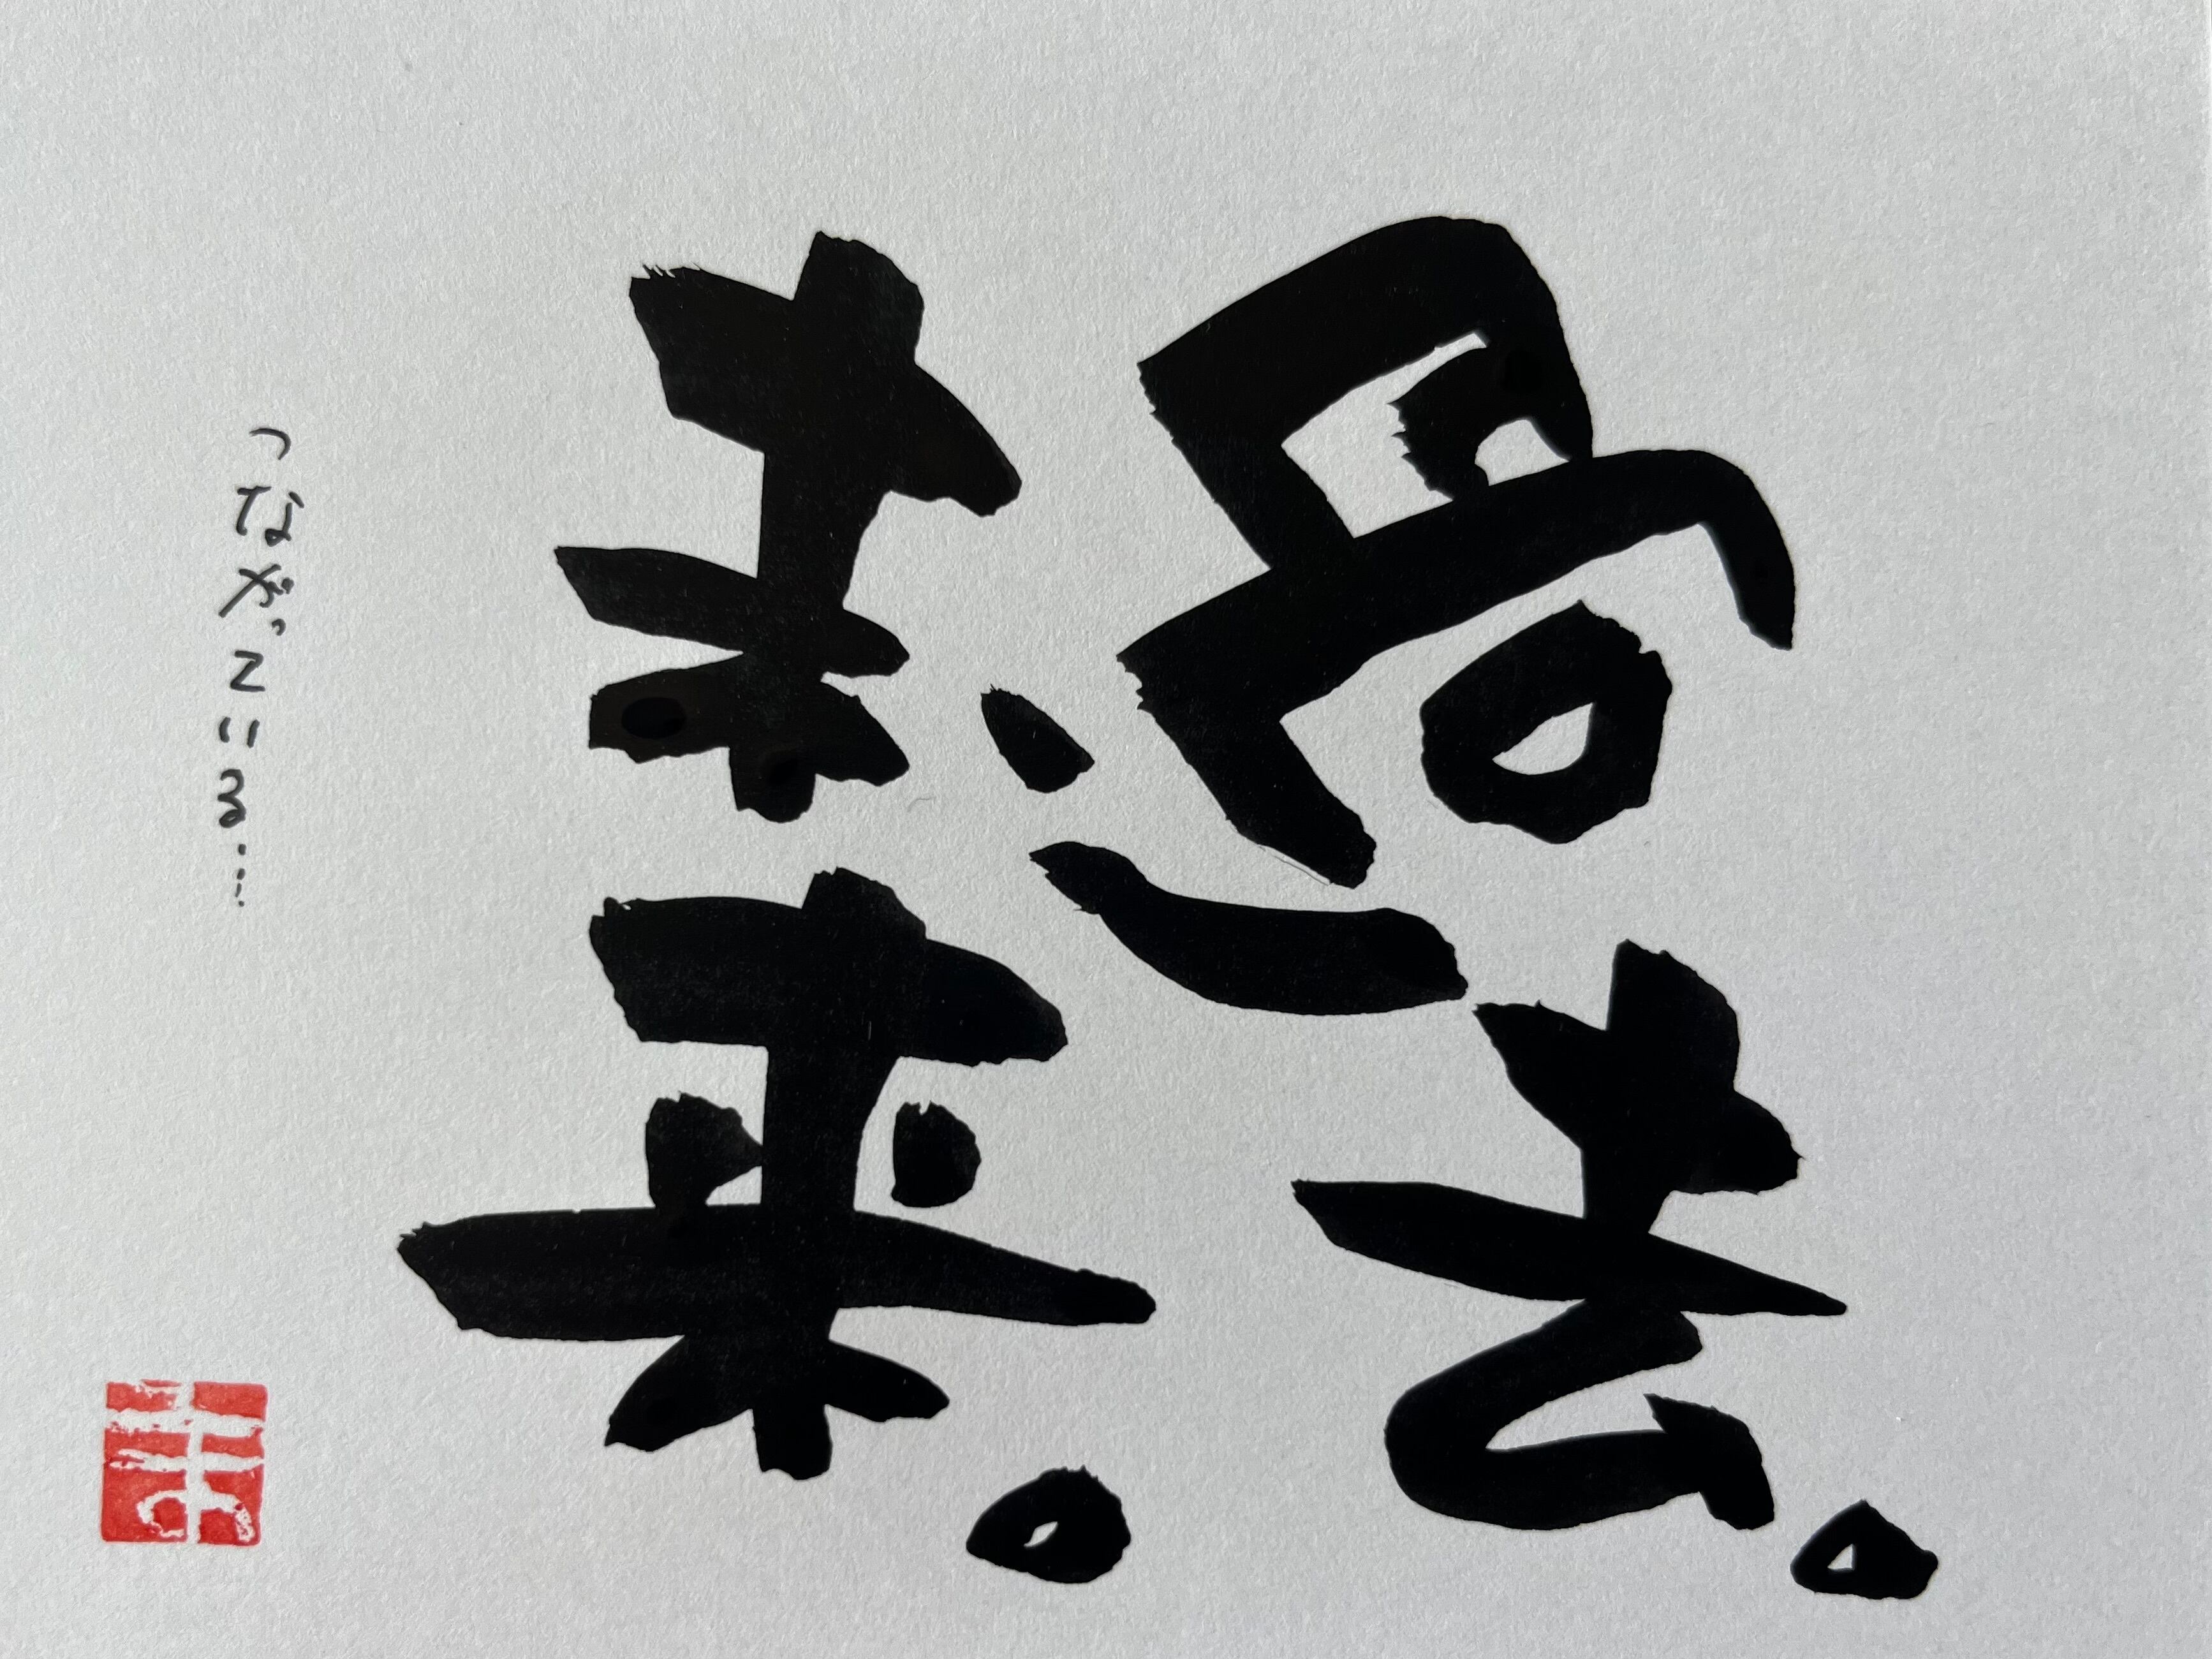 過去。
未来。
つながっている…